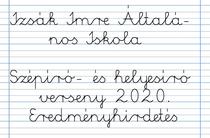 Izsák Imre Általá-
nos Iskola
Szépíró- és helyesíró
verseny 2020.
Eredményhirdetés